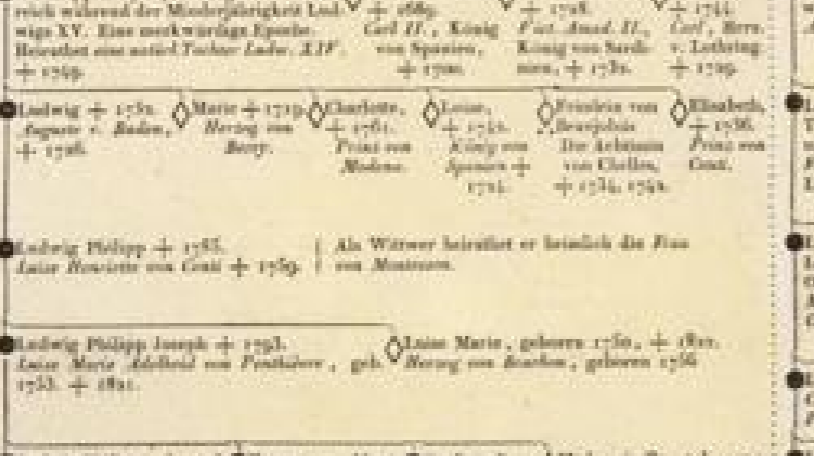 reich während der Minderjährigkeit Lud-
wigs XV. Eine merkwürdige Epoche.
Heirathet eine natürl Tochter Ludw. XIV.
+ 1749.
+ 1689.
Carl II., König
von Spanien,
+ 1700.
+ 1728.
Vict. Amad. II.,
König von Sardi-
nien, + 1732.
+ 1744.
Carl, Herz.
v. Lothring.
+ 1729.
Ludwig + 1752.
Auguste v. Baden,
+ 1726.
Marie + 1719.
Herzog von
Berry.
Charlotte,
+ 1761.
Prinz von
Modena.
Luise,
+ 1742.
König von
Spanien +
1724.
Fräulein von
Beaujolois
Die Aebtissin
von Chelles,
+ 1734, 1742.
Elisabeth,
+ 1736.
Prinz von
Conti.
Ludwig Philipp + 1785.
Luise Henriette von Conti + 1759.
Als Wittwer heirathet er heimlich die Frau
von Montesson.
Ludwig Philipp Joseph + 1793.
Luise Marie Adelheid von Penthièvre, geb.
1753. + 1821.
Luise Marie, geboren 1750, + 1822.
Herzog von Bourbon, geboren 1756